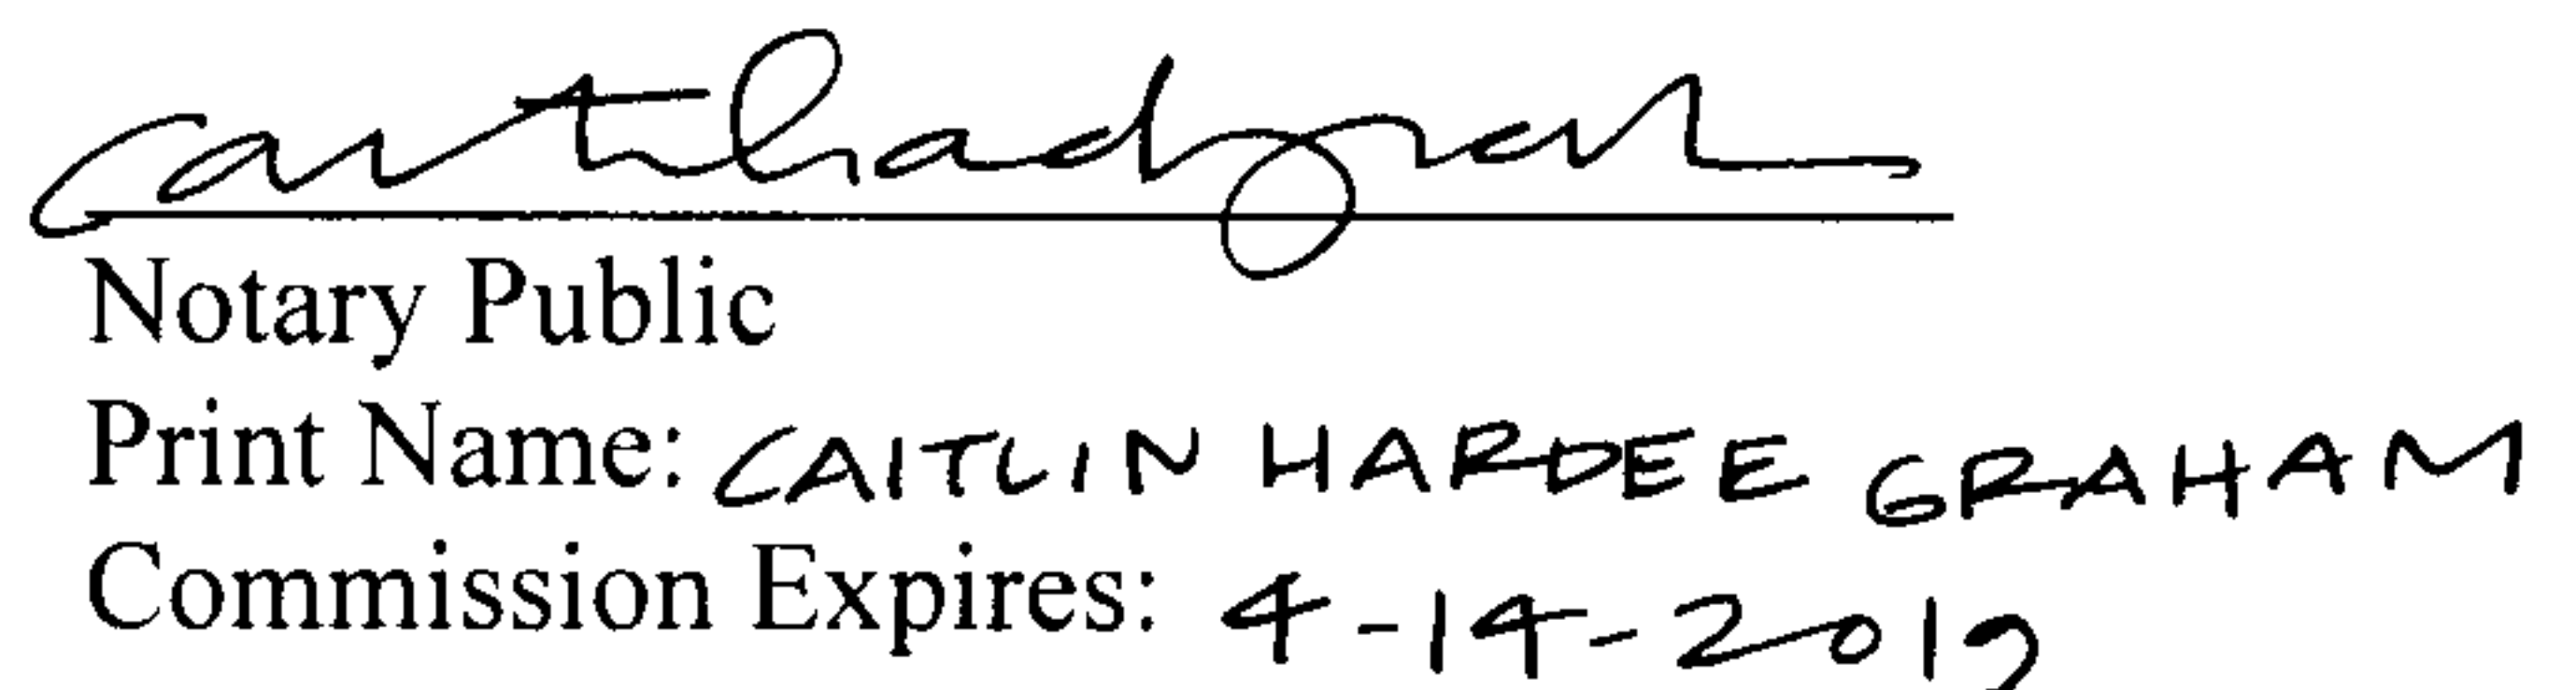 Notary Public
Print Name: CAITLIN HARDEE GRAHAM
Commission Expires: 4-14-2019